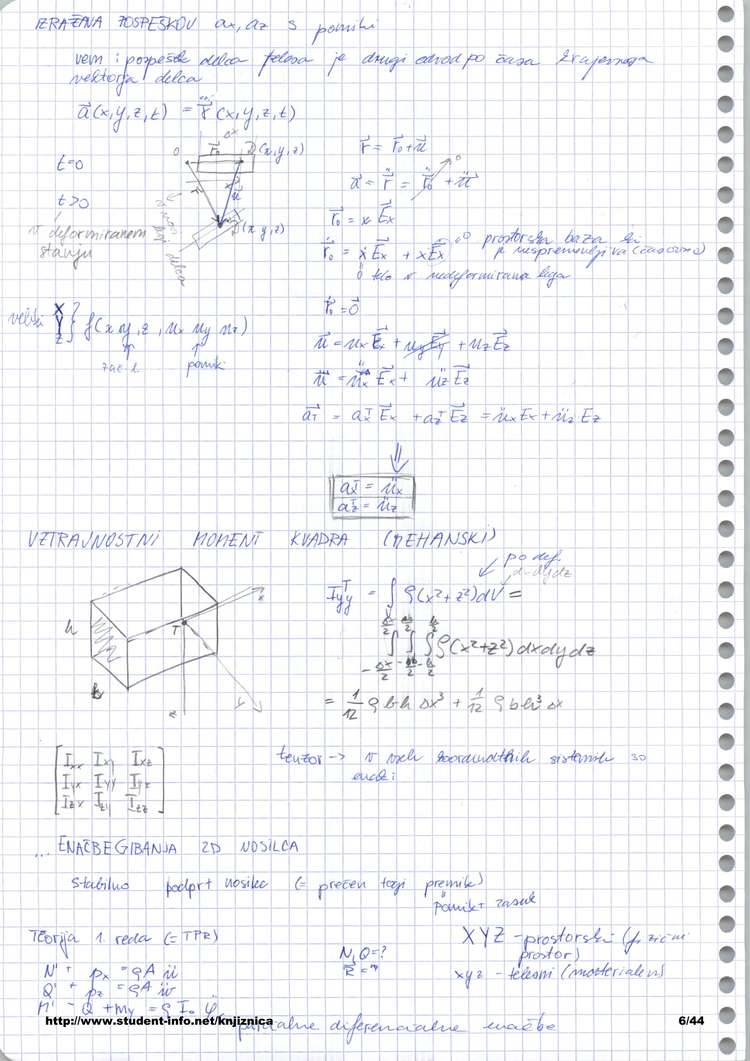 IZRAŽAVA POSPEŠKOV ax, az S pomiki
vem: pospešek delca telesa je drugi odvod po času krajevnega
vektorja delca
a⃗(x,y,z,t) = r̈⃗(x,y,z,t)
Δx
r⃗₀ D(x,y,z)
0
t=0
t>0
v deformiranem
stanju
u⃗
D'(x,y,z)
delca
r⃗ = r⃗₀ + u⃗
a⃗ = r̈⃗ = r̈⃗₀ + ü⃗
0
r⃗₀ = x E⃗x
ṙ⃗₀ = ẋ E⃗x + x Ė⃗x
0 prostorska baza
je nespremenljiva (časovno)
0 telo v nedeformirana lega
r̈⃗₀ = 0⃗
veliki X Y Z } f(x,y,z, ux uy uz)
zač. l. pomiki
u⃗ = ux E⃗x + uy E⃗y + uz E⃗z
ü⃗ = üx E⃗x + üz E⃗z
a⃗T = axT E⃗x + azT E⃗z = üx Ex + üz Ez
⇓
axT = üx
azT = üz
VZTRAJNOSTNI MOMENT KVADRA (MEHANSKI)
po def.
dxdydz
IyyT = ∫ρ(x²+z²)dV =
Δx/2 b/2 h/2
∫∫∫ρ(x²+z²)dxdydz
-Δx/2 -b/2 -h/2
= 1/12 ρbh Δx³ + 1/12 ρbh³ Δx
h
b
T
x
y
z
Ixx Ixy Ixz
Iyx Iyy Iyz
Izx Izy Izz
tenzor -> v vseh koordinatnih sistemih so
enaki
... ENAČBE GIBANJA 2D NOSILCA
Stabilno podprt nosilec (= prečen togi premik)
pomik + zasuk
Teorija 1. reda (= TPR)
N' + px = ρA ü
Q' + pz = ρA ẅ
M' - Q + my = ρ I₀ φ̈
N, Q = ?
XYZ - prostorski (fizični
prostor)
xyz - telesni (materialni)
parcialne diferencialne enačbe
http://www.student-info.net/knjiznica
6/44